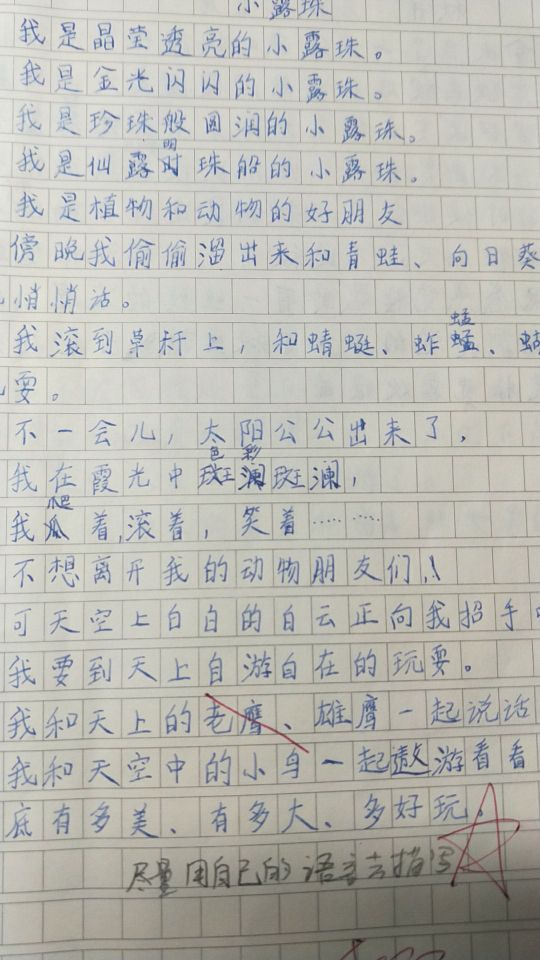 小露珠
我是晶莹透亮的小露珠。
我是金光闪闪的小露珠。
我是珍珠般圆润的小露珠。
我是仙露明珠般的小露珠。
我是植物和动物的好朋友
傍晚我偷偷溜出来和青蛙、向日葵
悄悄话。
我滚到草秆上，和蜻蜓、蚱蜢、
耍。
不一会儿，太阳公公出来了，
我在霞光中色彩斑斓，
我爬着,滚着，笑着…………
不想离开我的动物朋友们，
可天空上白白的白云正向我招手
我要到天上自游自在的玩耍。
我和天上的老鹰、雄鹰一起说话
我和天空中的小鸟一起遨游看看
底有多美、有多大、多好玩。
尽量用自己的语言去描写